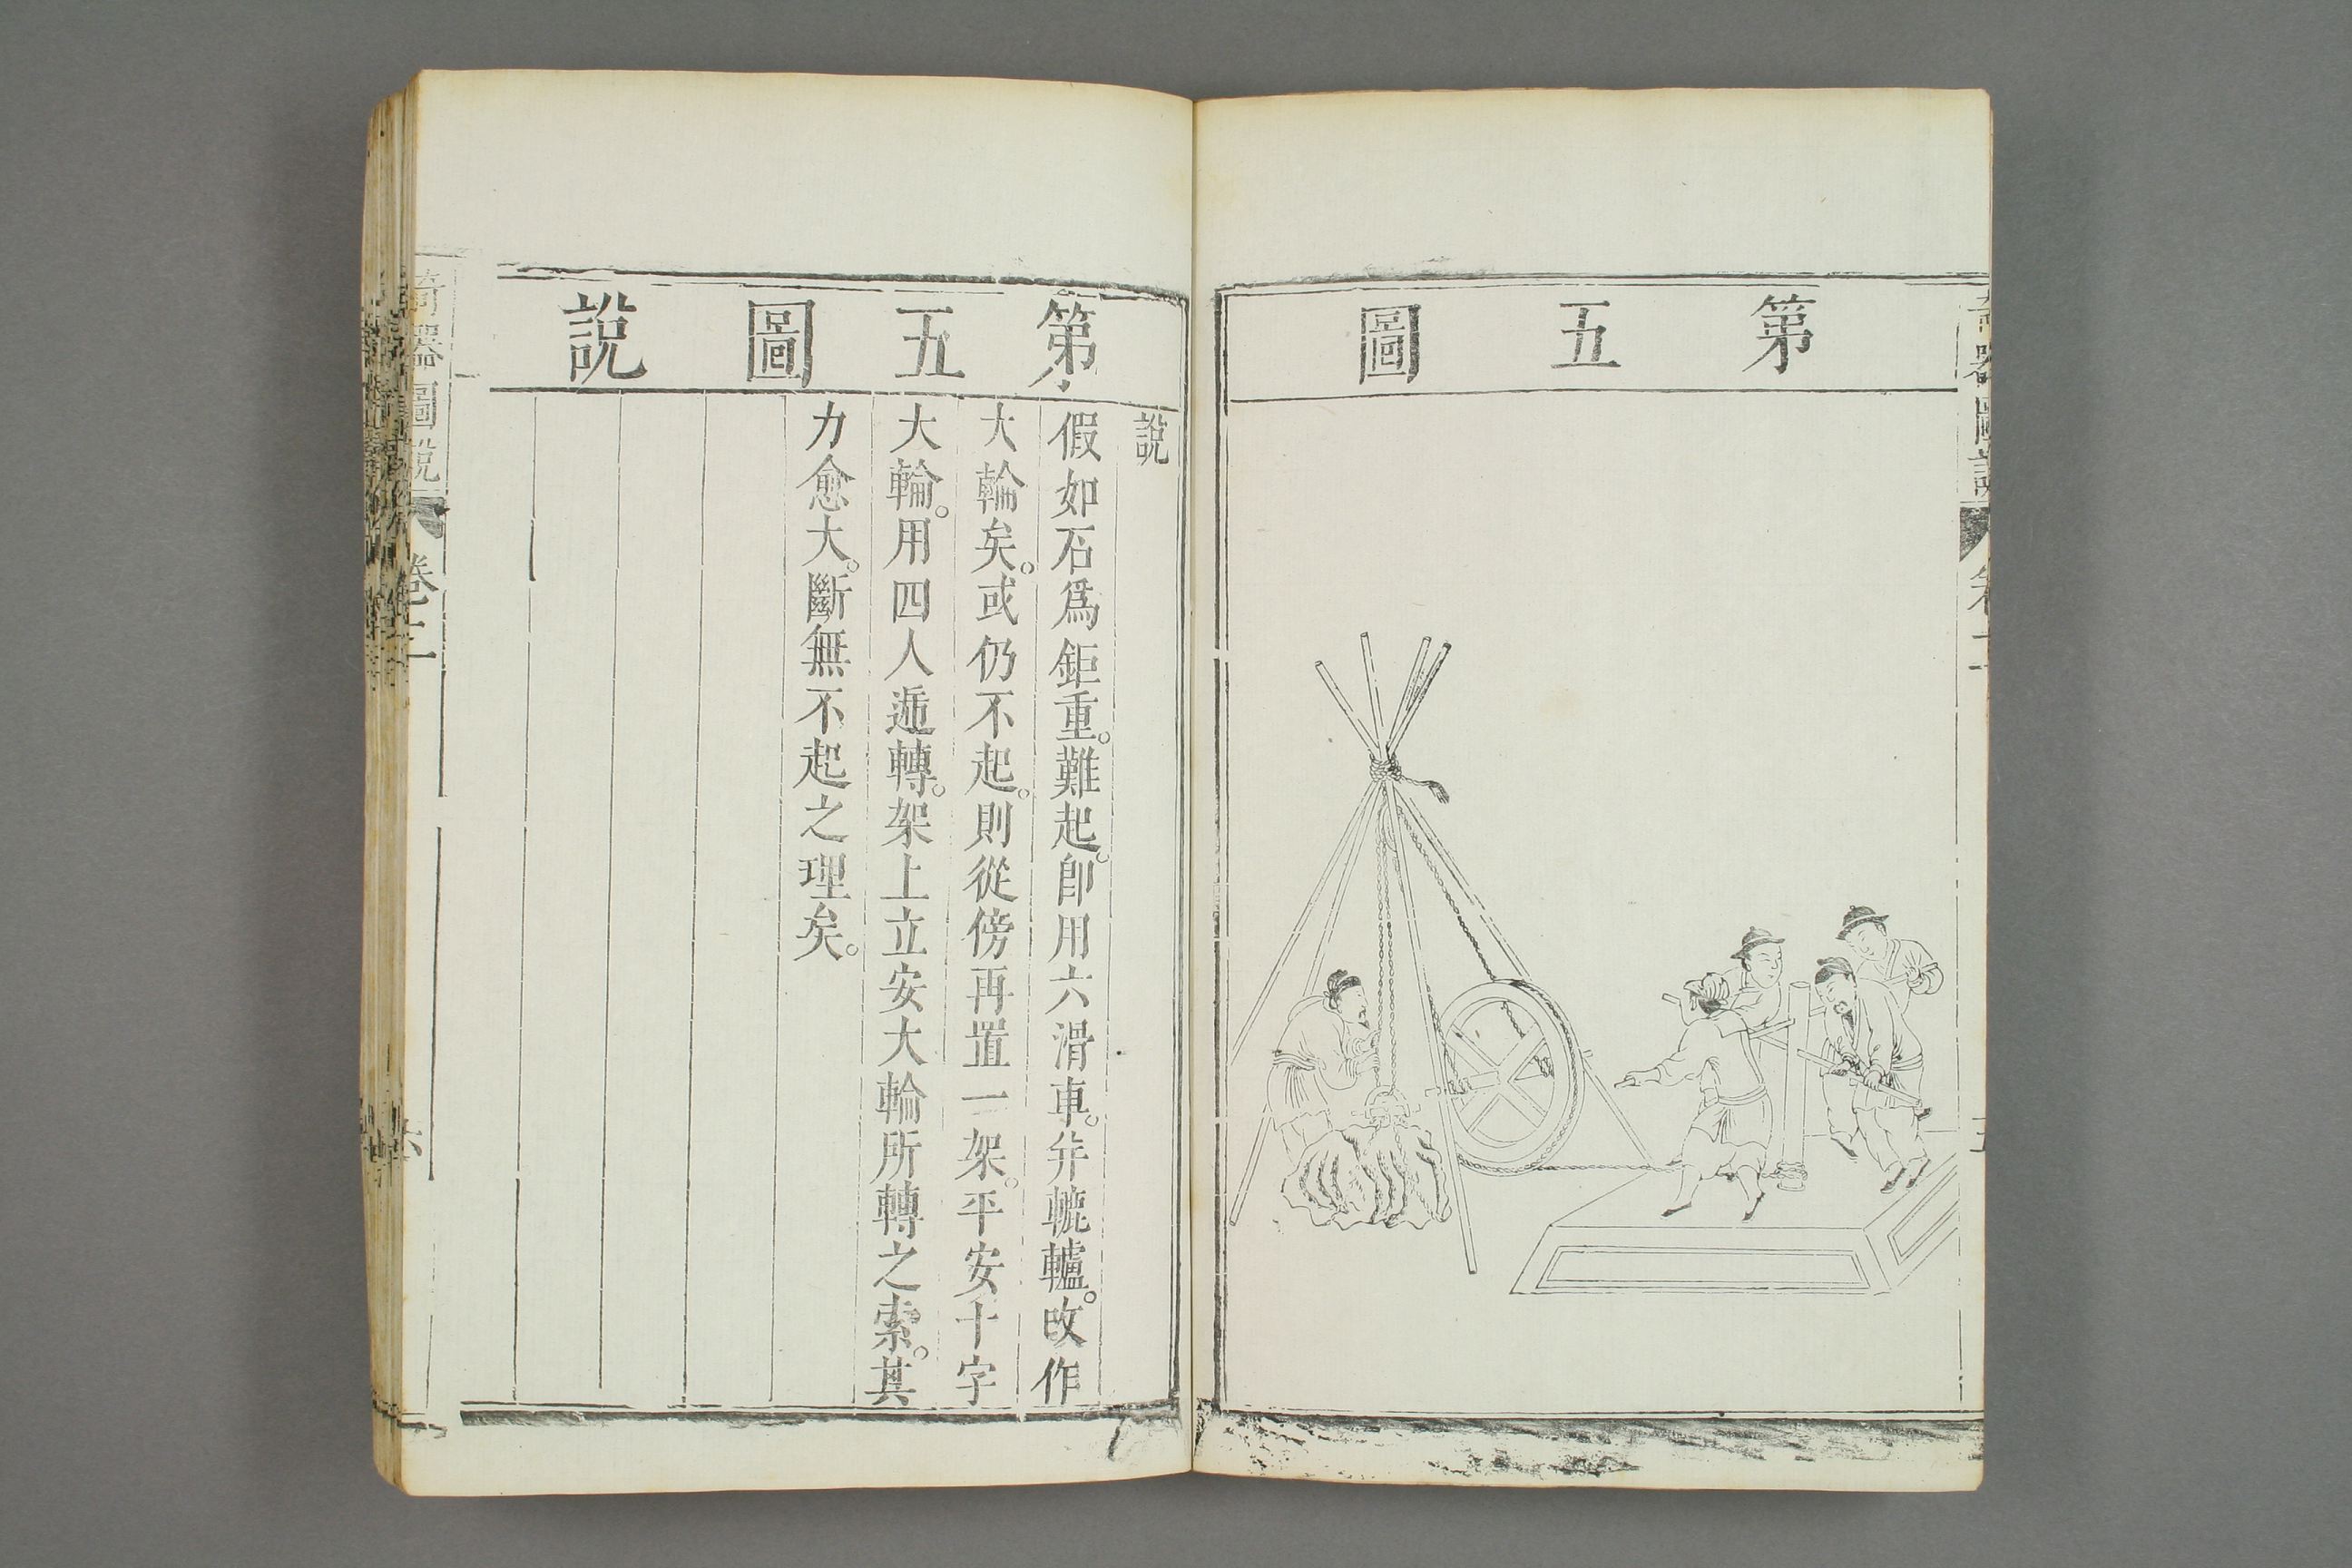 第五圖
第五圖說
說
假如石爲鉅重。難起。卽用六滑車。并轆轤。改作
大輪矣。或仍不起。則從傍再置一架。平安十字
大輪。用四人遞轉。架上立安大輪所轉之索。其
力愈大。斷無不起之理矣。
奇器圖說
卷三
六